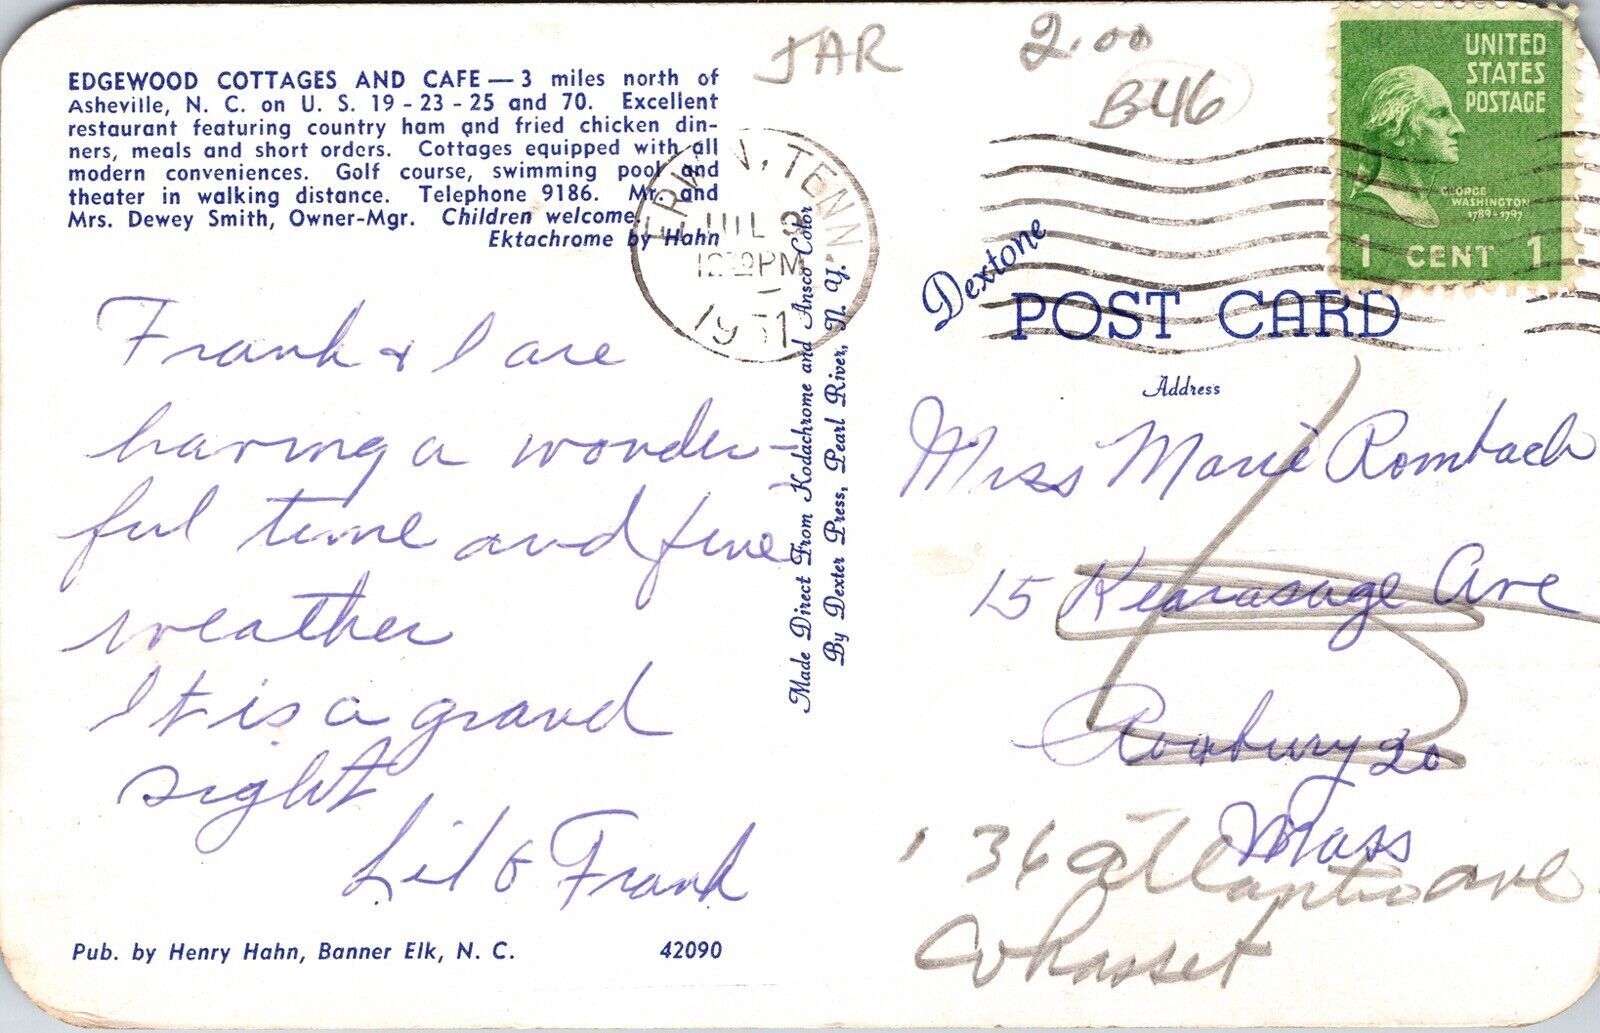 JAR
2.00
B46
EDGEWOOD COTTAGES AND CAFE — 3 miles north of
Asheville, N. C. on U. S. 19 - 23 - 25 and 70. Excellent
restaurant featuring country ham and fried chicken din-
ners, meals and short orders. Cottages equipped with all
modern conveniences. Golf course, swimming pool and
theater in walking distance. Telephone 9186. Mr. and
Mrs. Dewey Smith, Owner-Mgr. Children welcome.
Ektachrome by Hahn
Frank & I are
having a wonder-
ful time and fine
weather
It is a grand
sight
Lil & Frank
Pub. by Henry Hahn, Banner Elk, N. C.
42090
ERWIN, TENN.
JUL 9
PM
1951
Made Direct From Kodachrome and Ansco Color
By Dexter Press, Pearl River, N. Y.
UNITED
STATES
POSTAGE
GEORGE
WASHINGTON
1789-1797
1 CENT 1
Dextone
POST CARD
Address
Miss Marie Rombach
15 Kearasage Ave
Roxbury 20
Mass
36 Atlantic ave
Cohasset